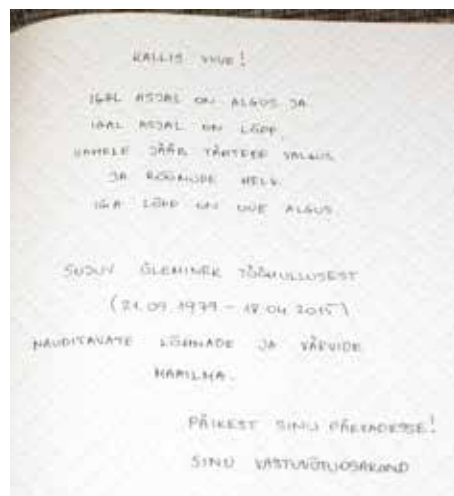 KALLIS VIVE!
IGAL ASJAL ON ALGUS JA
IGAL ASJAL ON LÕPP,
VAHELE JÄÄB TÄHTEDE VALGUS
JA RÕÕMUDE HELK.
IGA LÕPP ON UUE ALGUS.
SUJUV ÜLEMINEK TÖÖHULLUSEST
(21.09.1979 - 18.04.2015)
NAUDITAVATE LÕHNADE JA VÄRVIDE
MAAILMA.
PÄIKEST SINU PÄEVADESSE!
SINU VASTUVÕTUOSAKOND